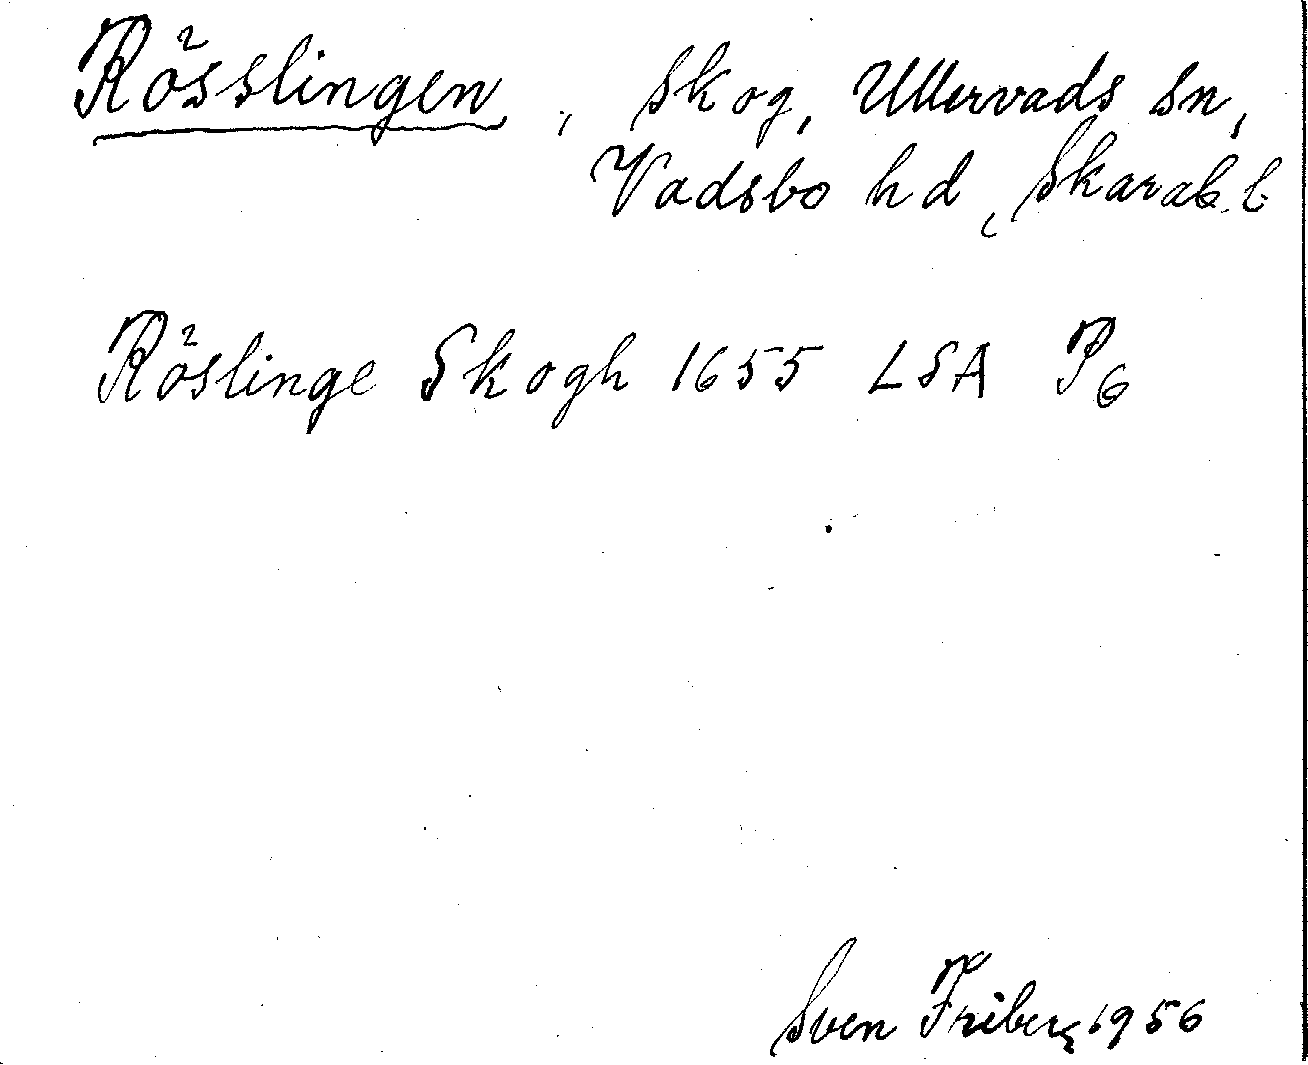 Rösslingen, skog, Ullervads sn,
Vadsbo hd, Skarab. l.
Röslinge Skogh 1655 LSA P6
Sven Friberg 1956